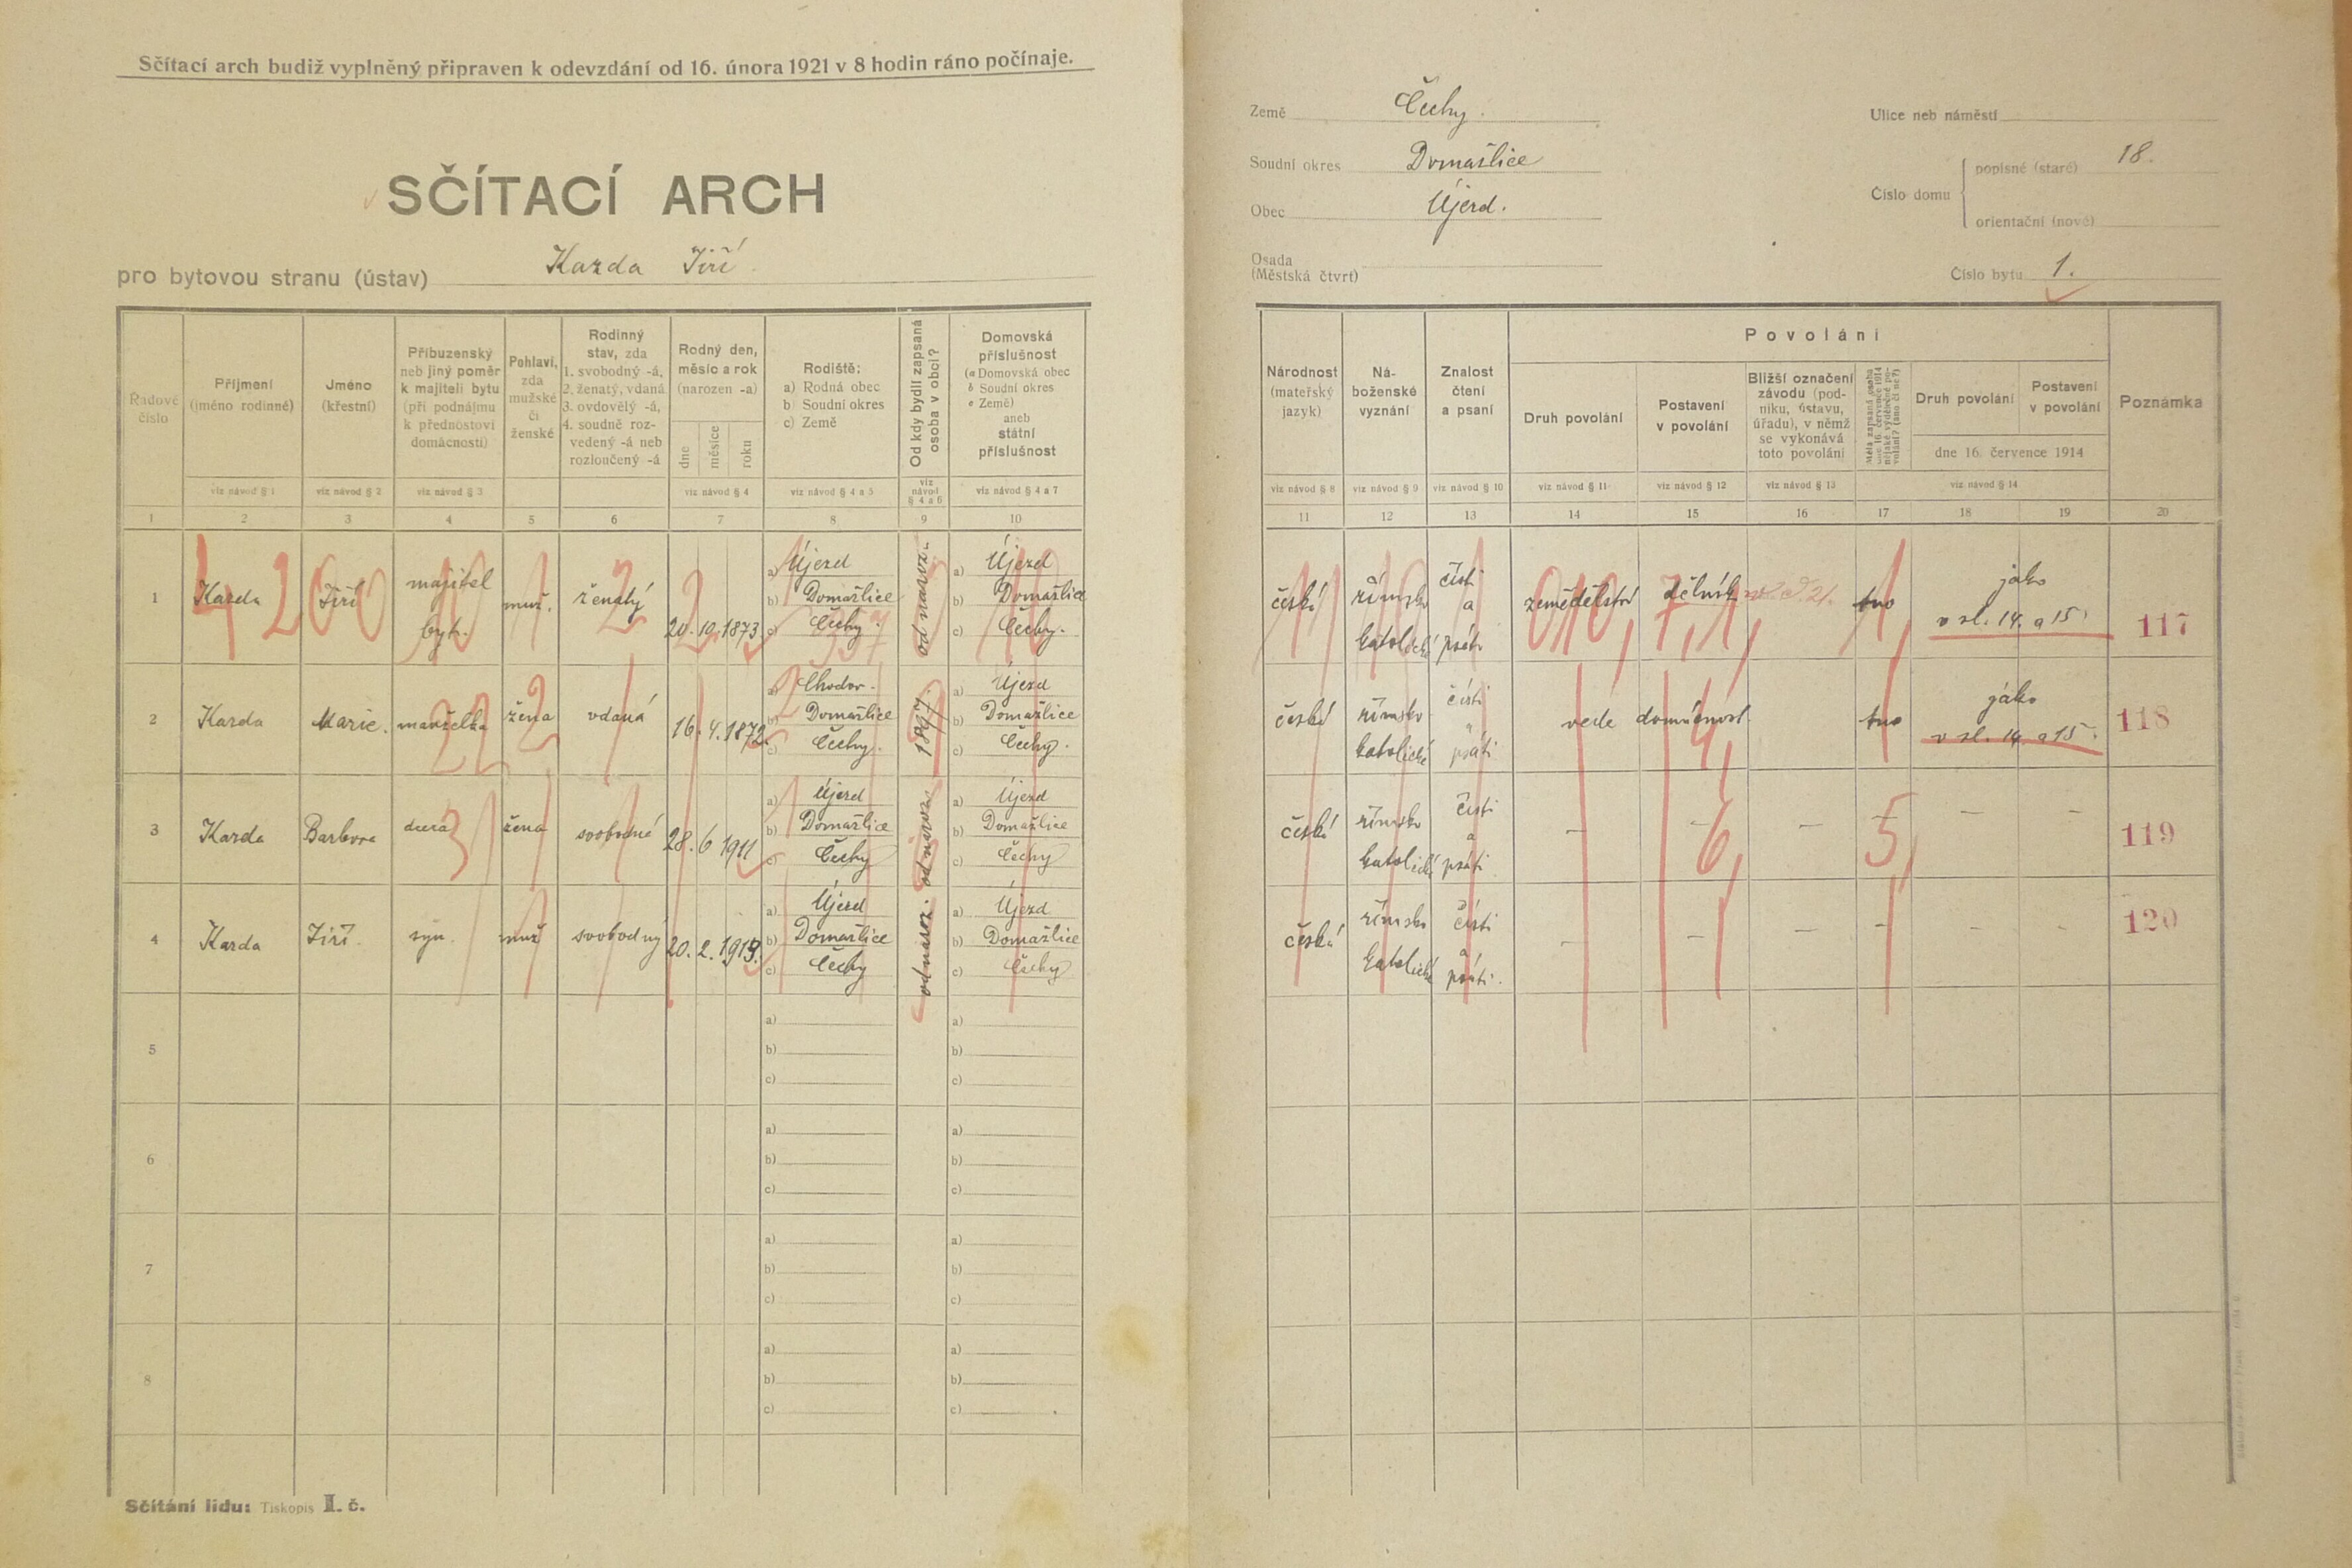 Sčítací arch budiž vyplněný připraven k odevzdání od 16. února 1921 v 8 hodin ráno počínaje.
SČÍTACÍ ARCH
pro bytovou stranu (ústav) Kazda Jiří
Země Čechy.
Soudní okres Domažlice
Obec Újezd.
Osada
(Městská čtvrt)
Ulice neb náměstí
Číslo domu
popisné (staré) 18.
orientační (nové)
Číslo bytu 1.
Řadové číslo
Příjmení (jméno rodinné)
Jméno (křestní)
Příbuzenský neb jiný poměr k majiteli bytu (při podnájmu k přednostovi domácnosti)
Pohlaví, zda mužské či ženské
Rodinný stav, zda 1. svobodný -á, 2. ženatý, vdaná 3. ovdovělý -á, 4. soudně rozvedený -á neb rozloučený -á
Rodný den, měsíc a rok (narozen -a)
dne měsíce roku
Rodiště: a) Rodná obec b) Soudní okres c) Země
Od kdy bydlí zapsaná osoba v obci?
Domovská příslušnost (a Domovská obec b Soudní okres c Země) aneb státní příslušnost
viz návod § 1 viz návod § 2 viz návod § 3 viz návod § 4 viz návod § 4 a 5 viz návod § 4 a 6 viz návod § 4 a 7
1 2 3 4 5 6 7 8 9 10
Národnost (mateřský jazyk)
Náboženské vyznání
Znalost čtení a psaní
Povolání
Druh povolání
Postavení v povolání
Bližší označení závodu (podniku, ústavu, úřadu), v němž se vykonává toto povolání
Měla zapsaná osoba dne 16. července 1914 nějaké výdělečné povolání? (ano či ne?)
Druh povolání
Postavení v povolání
dne 16. července 1914
Poznámka
viz návod § 8 viz návod § 9 viz návod § 10 viz návod § 11 viz návod § 12 viz návod § 13 viz návod § 14
11 12 13 14 15 16 17 18 19 20
1 Kazda Jiří majitel byt. muž. ženatý 24. 10. 1873 a) Újezd b) Domažlice c) Čechy. od naroz. a) Újezd b) Domažlice c) Čechy. česká římsko katolické čísti a psáti zemědělství dělník ano jako v sl. 14. a 15 117
2 Kazda Marie. manželka žena vdaná 16. 4. 1872. a) Chodov. b) Domažlice c) Čechy. 1897. a) Újezd b) Domažlice c) Čechy. česká římsko katolické čísti a psáti vede domácnost. ano jako v sl. 14 a 15. 118
3 Kazda Barbora dcera žena svobodná 28. 6 1911 a) Újezd b) Domažlice c) Čechy od naroz. a) Újezd b) Domažlice c) Čechy česká římsko katolické čísti a psáti — — — — — — 119
4 Kazda Jiří. syn. muž svobodný 20. 2. 1913. a) Újezd b) Domažlice c) Čechy od naroz. a) Újezd b) Domažlice c) Čechy česká římsko katolické čísti a psáti. — — — — - - 120
5 a) b) c) a) b) c)
6 a) b) c) a) b) c)
7 a) b) c) a) b) c)
8 a) b) c) a) b) c)
Sčítání lidu: Tiskopis I. č.